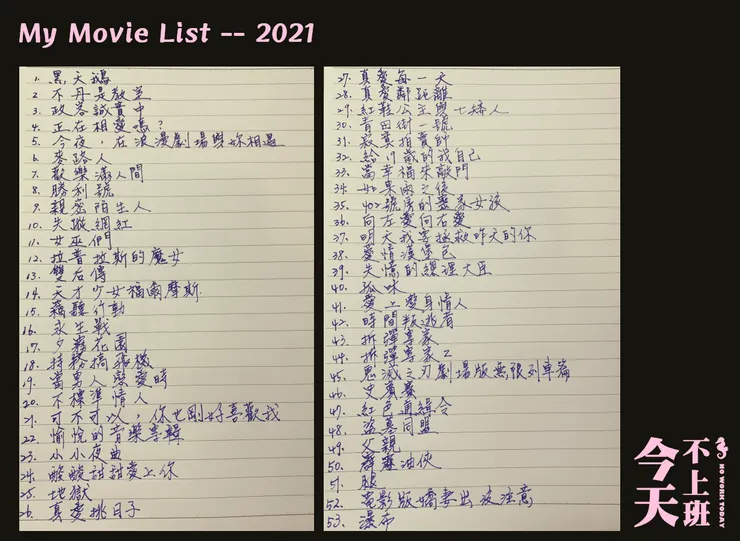 My Movie List -- 2021
1. 黑天鵝
2. 不丹是教室
3. 政客誠實中
4. 正在相愛嗎？
5. 今夜，在浪漫劇場與妳相遇
6. 麥路人
7. 歡樂滿人間
8. 勝利號
9. 親密陌生人
10. 失蹤網紅
11. 女巫們
12. 拉普拉斯的魔女
13. 雙后傳
14. 天才少女福爾摩斯
15. 竊聽行動
16. 永生戰
17. 夕霧花園
18. 特務搞飛機
19. 當男人戀愛時
20. 不標準情人
21. 可不可以，你也剛好喜歡我
22. 愉悅的音樂專輯
23. 小小夜曲
24. 酸酸甜甜愛上你
25. 地獄
26. 真愛挑日子
27. 真愛每一天
28. 真愛鄰距離
29. 紅鞋公主與七矮人
30. 青田街一號
31. 寂寞拍賣師
32. 給19歲的我自己
33. 當幸福來敲門
34. 如果雨之後
35. 402號房的畫家女孩
36. 向左愛向右愛
37. 明天我要拯救昨天的你
38. 愛情漢堡包
39. 失憶的總理大臣
40. 孤味
41. 愛上變身情人
42. 時間叛逃者
43. 拆彈專家
44. 拆彈專家2
45. 鬼滅之刃劇場版無限列車篇
46. 史賓賽
47. 紅色通緝令
48. 盜墓同盟
49. 父親
50. 油俠
51. 腿
52. 電影版嬌妻出沒注意
53. 瀑布
今天
不上班
NO WORK TODAY